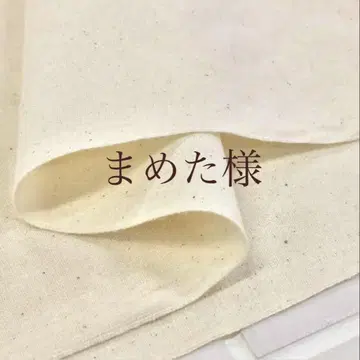 まめた様